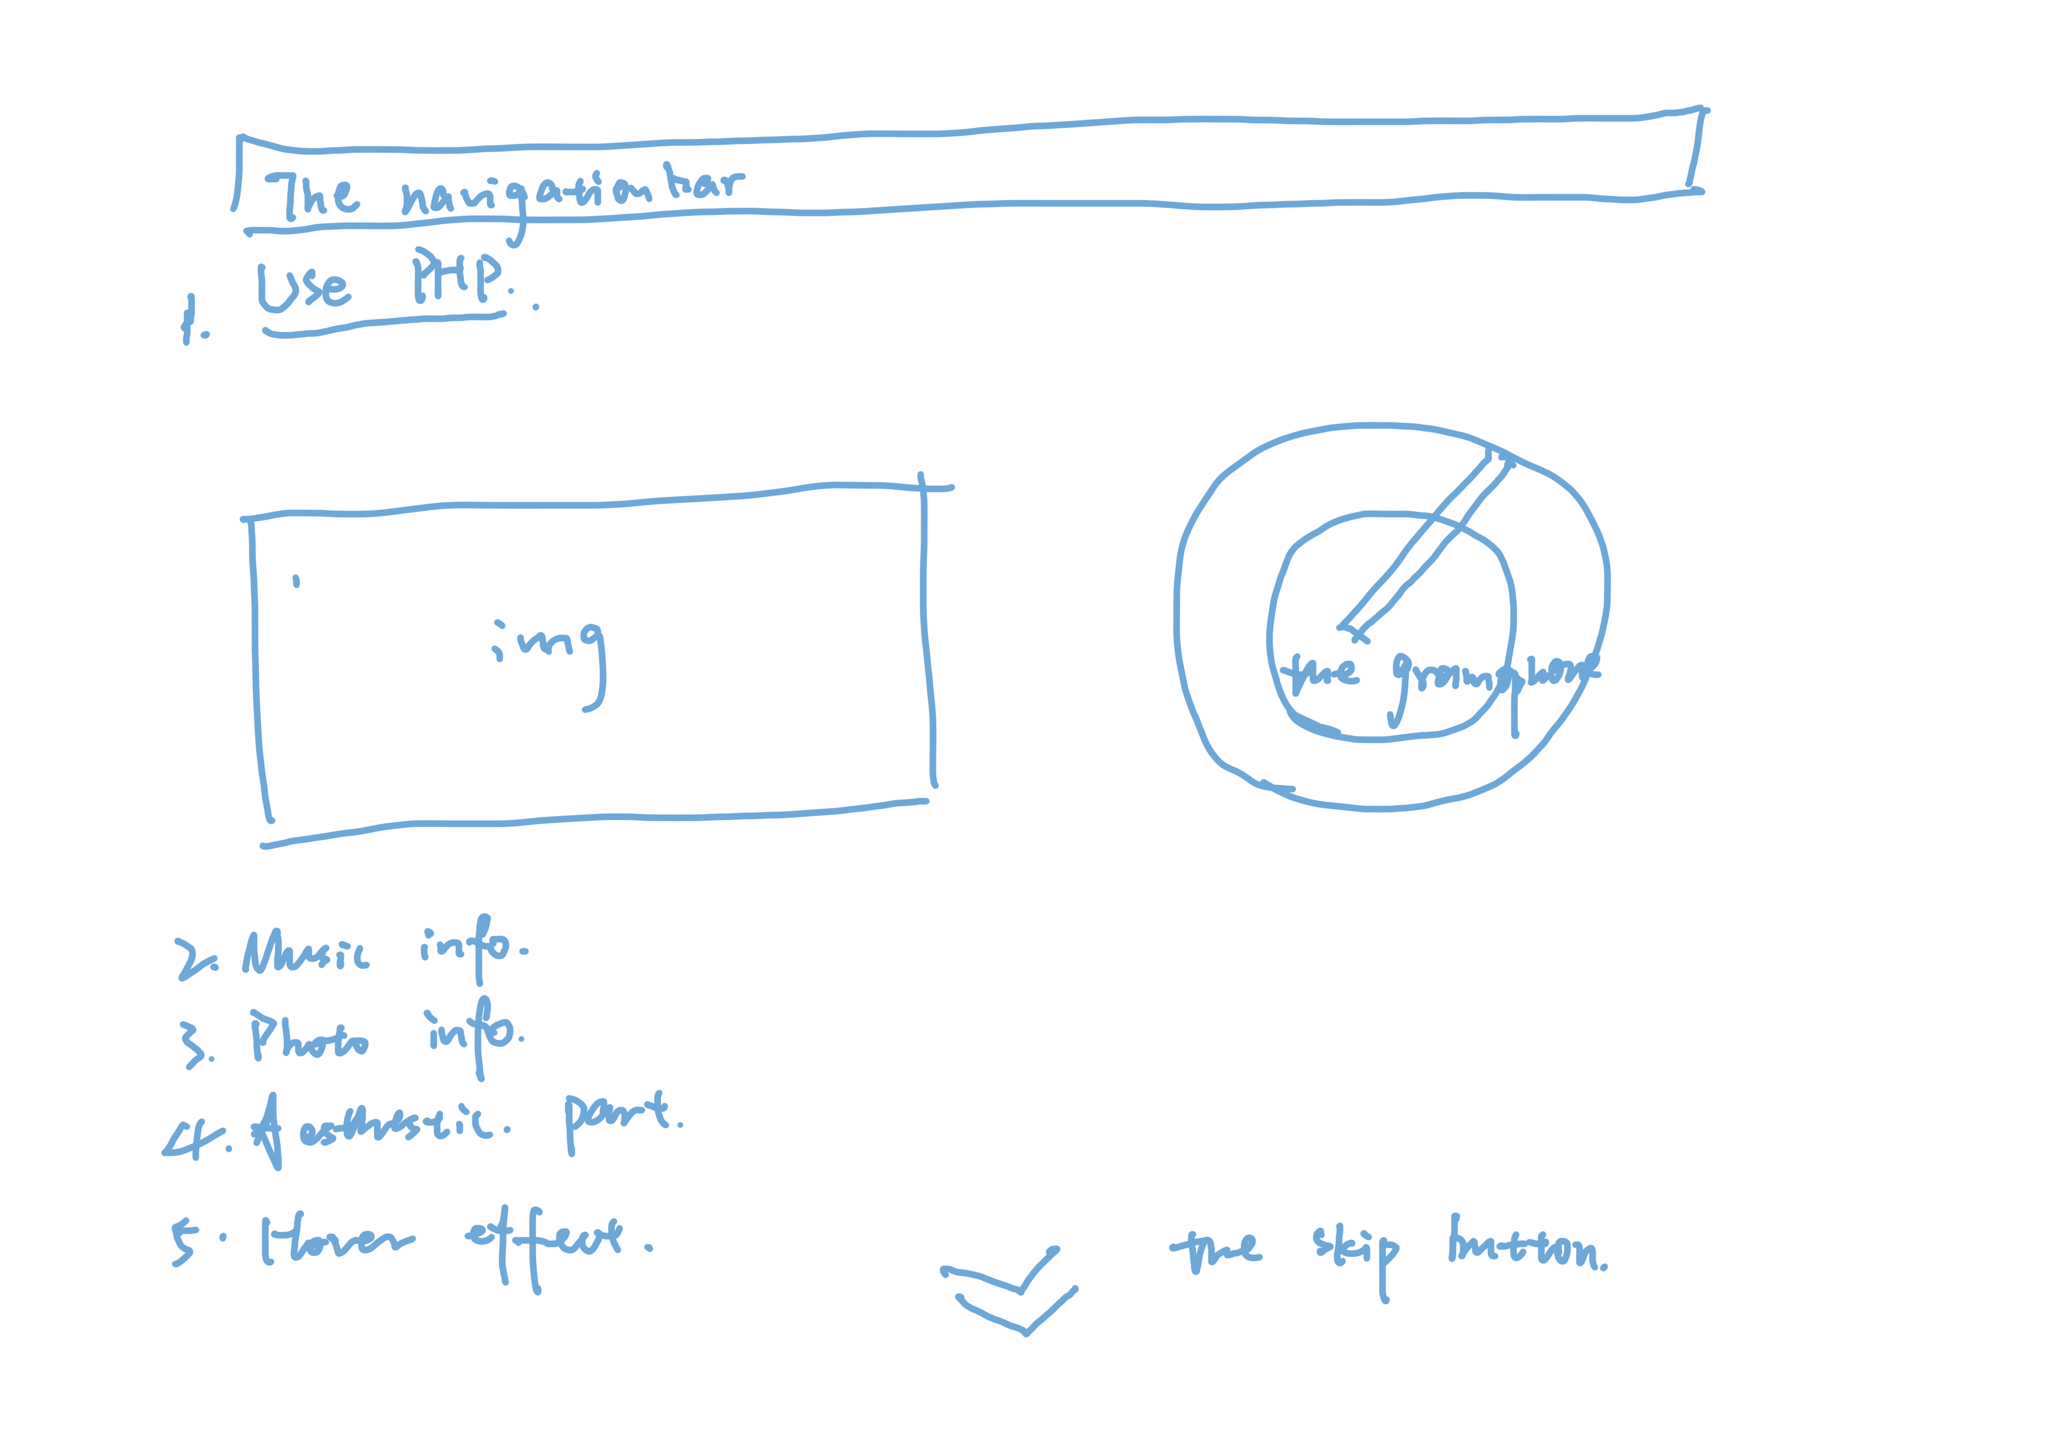 The navigation bar
1. Use PHP.
img
the gramophone
2. Music info.
3. Photo info.
4. Aesthestic. part.
5. Hover effect.
the skip button.